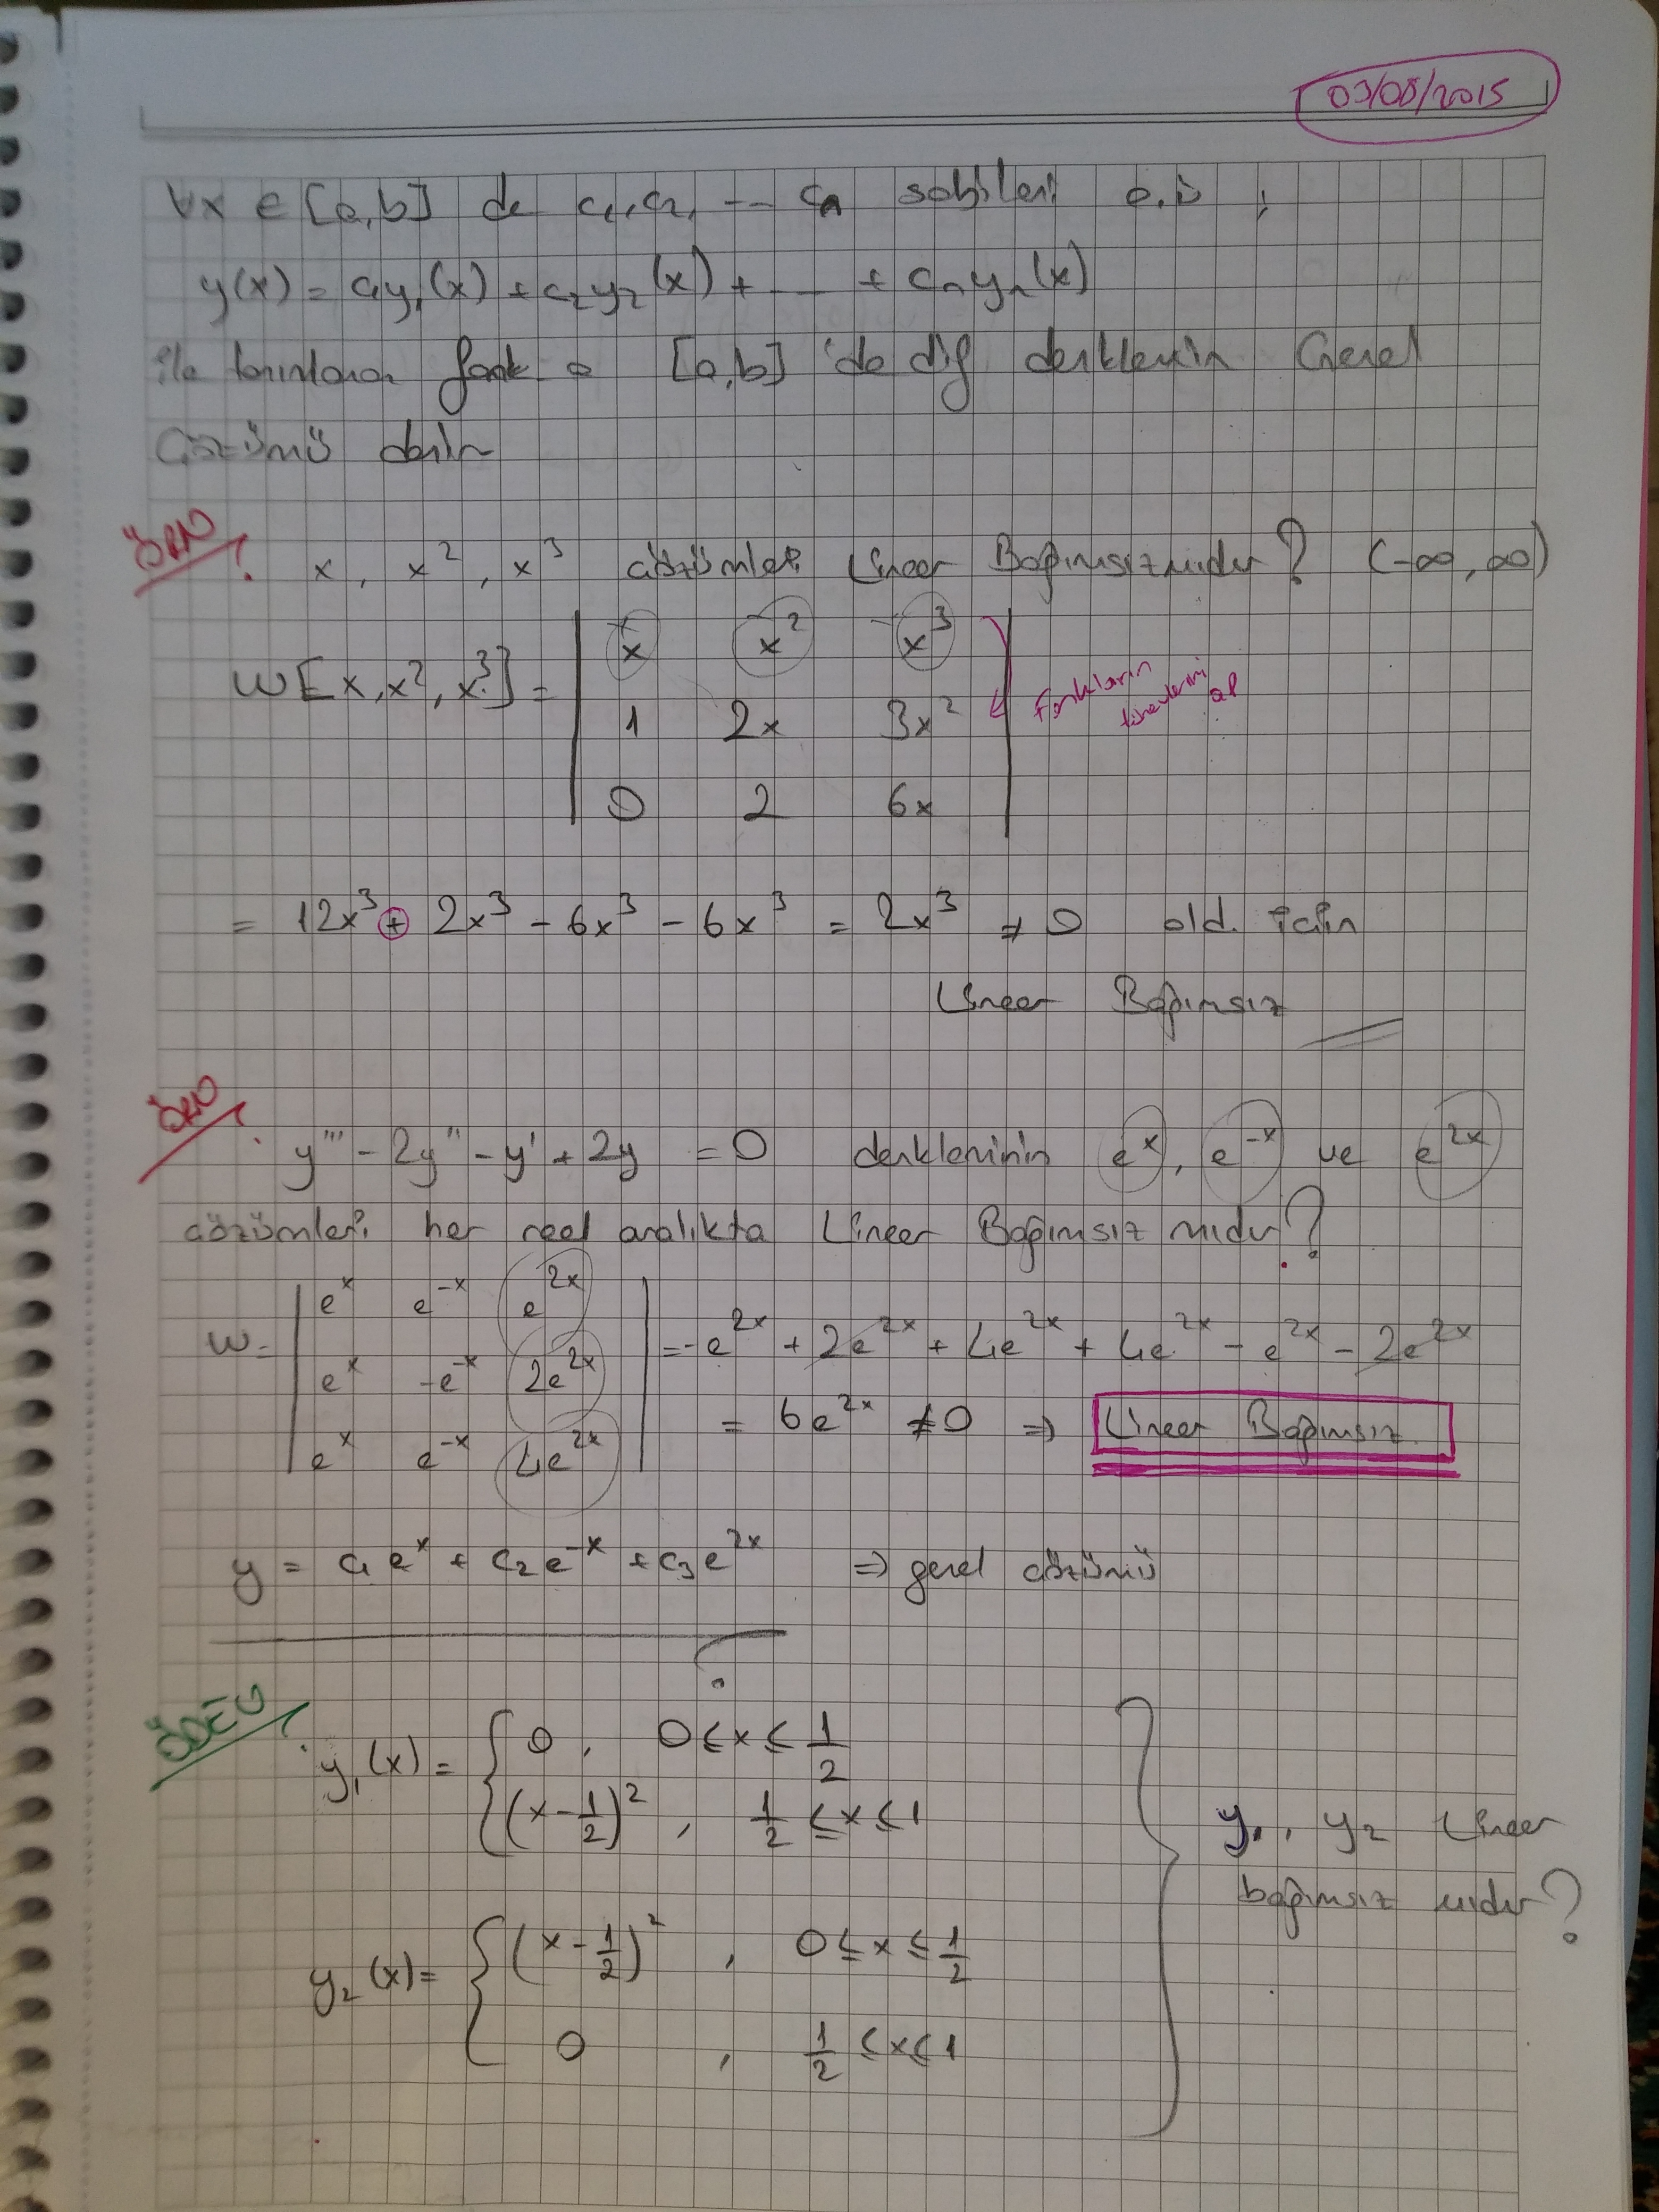 03/08/2015
∀x ∈ [a,b] de c₁,c₂, --- cₙ sabitleri o.ü ;
y(x) = c₁y₁(x) + c₂y₂(x) + ---- + cₙyₙ(x)
ile tanımlanan fonk a [a,b] 'de dif denklemin Genel
Çözümü denir
ÖRN
x, x², x³ çözümleri Lineer Bağımsızmıdır? (-∞, ∞)
W[x, x², x³] = | x x² x³ |
| 1 2x 3x² |
| 0 2 6x |
Fonkların
türevlerini
al
= 12x³ + 2x³ - 6x³ - 6x³ = 2x³ ≠ 0 old. için
Lineer Bağımsız
ÖRN
y''' - 2y'' - y' + 2y = 0 denkleminin eˣ, e⁻ˣ ve e²ˣ
çözümleri her reel aralıkta Lineer Bağımsız mıdır?
W = | eˣ e⁻ˣ e²ˣ | = -e²ˣ + 2e²ˣ + 4e²ˣ + 4e²ˣ - e²ˣ - 2e²ˣ
| eˣ -e⁻ˣ 2e²ˣ |
| eˣ e⁻ˣ 4e²ˣ |
= 6e²ˣ ≠ 0 ⇒ Lineer Bağımsız
y = c₁eˣ + c₂e⁻ˣ + c₃e²ˣ ⇒ genel çözümü
ÖDEV
y₁(x) = { 0 , 0 ≤ x ≤ 1/2
(x - 1/2)² , 1/2 ≤ x ≤ 1
y₁, y₂ Lineer
bağımsız mıdır?
y₂(x) = { (x - 1/2)² , 0 ≤ x ≤ 1/2
0 , 1/2 ≤ x ≤ 1